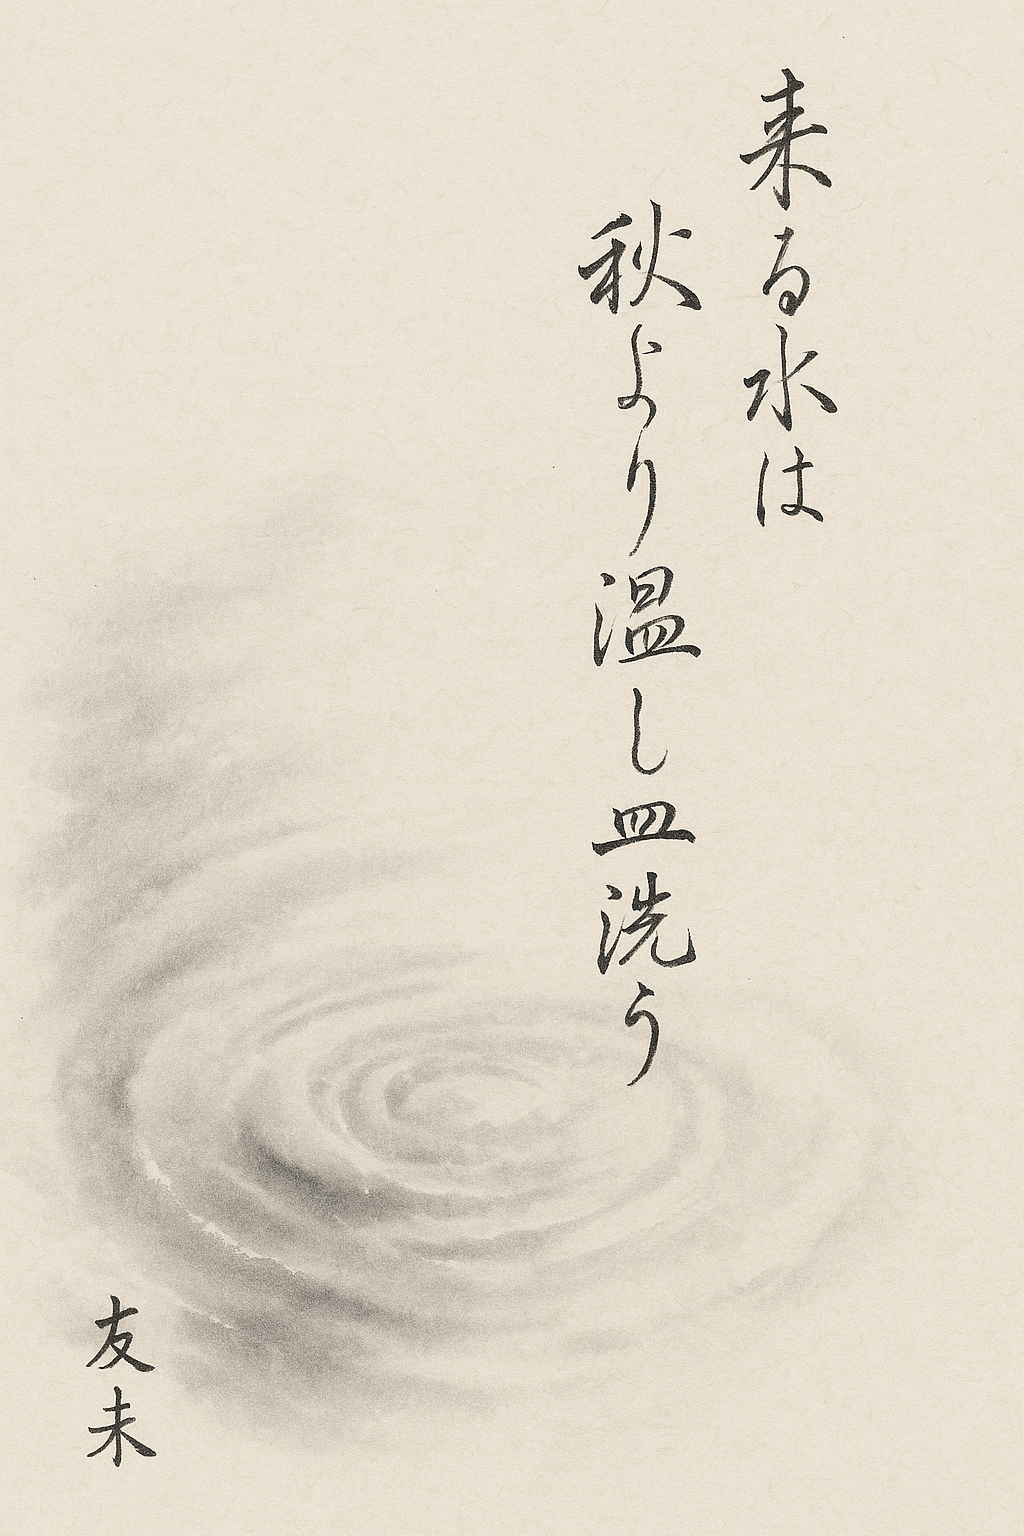 来る水は
秋より温し皿洗う
友未